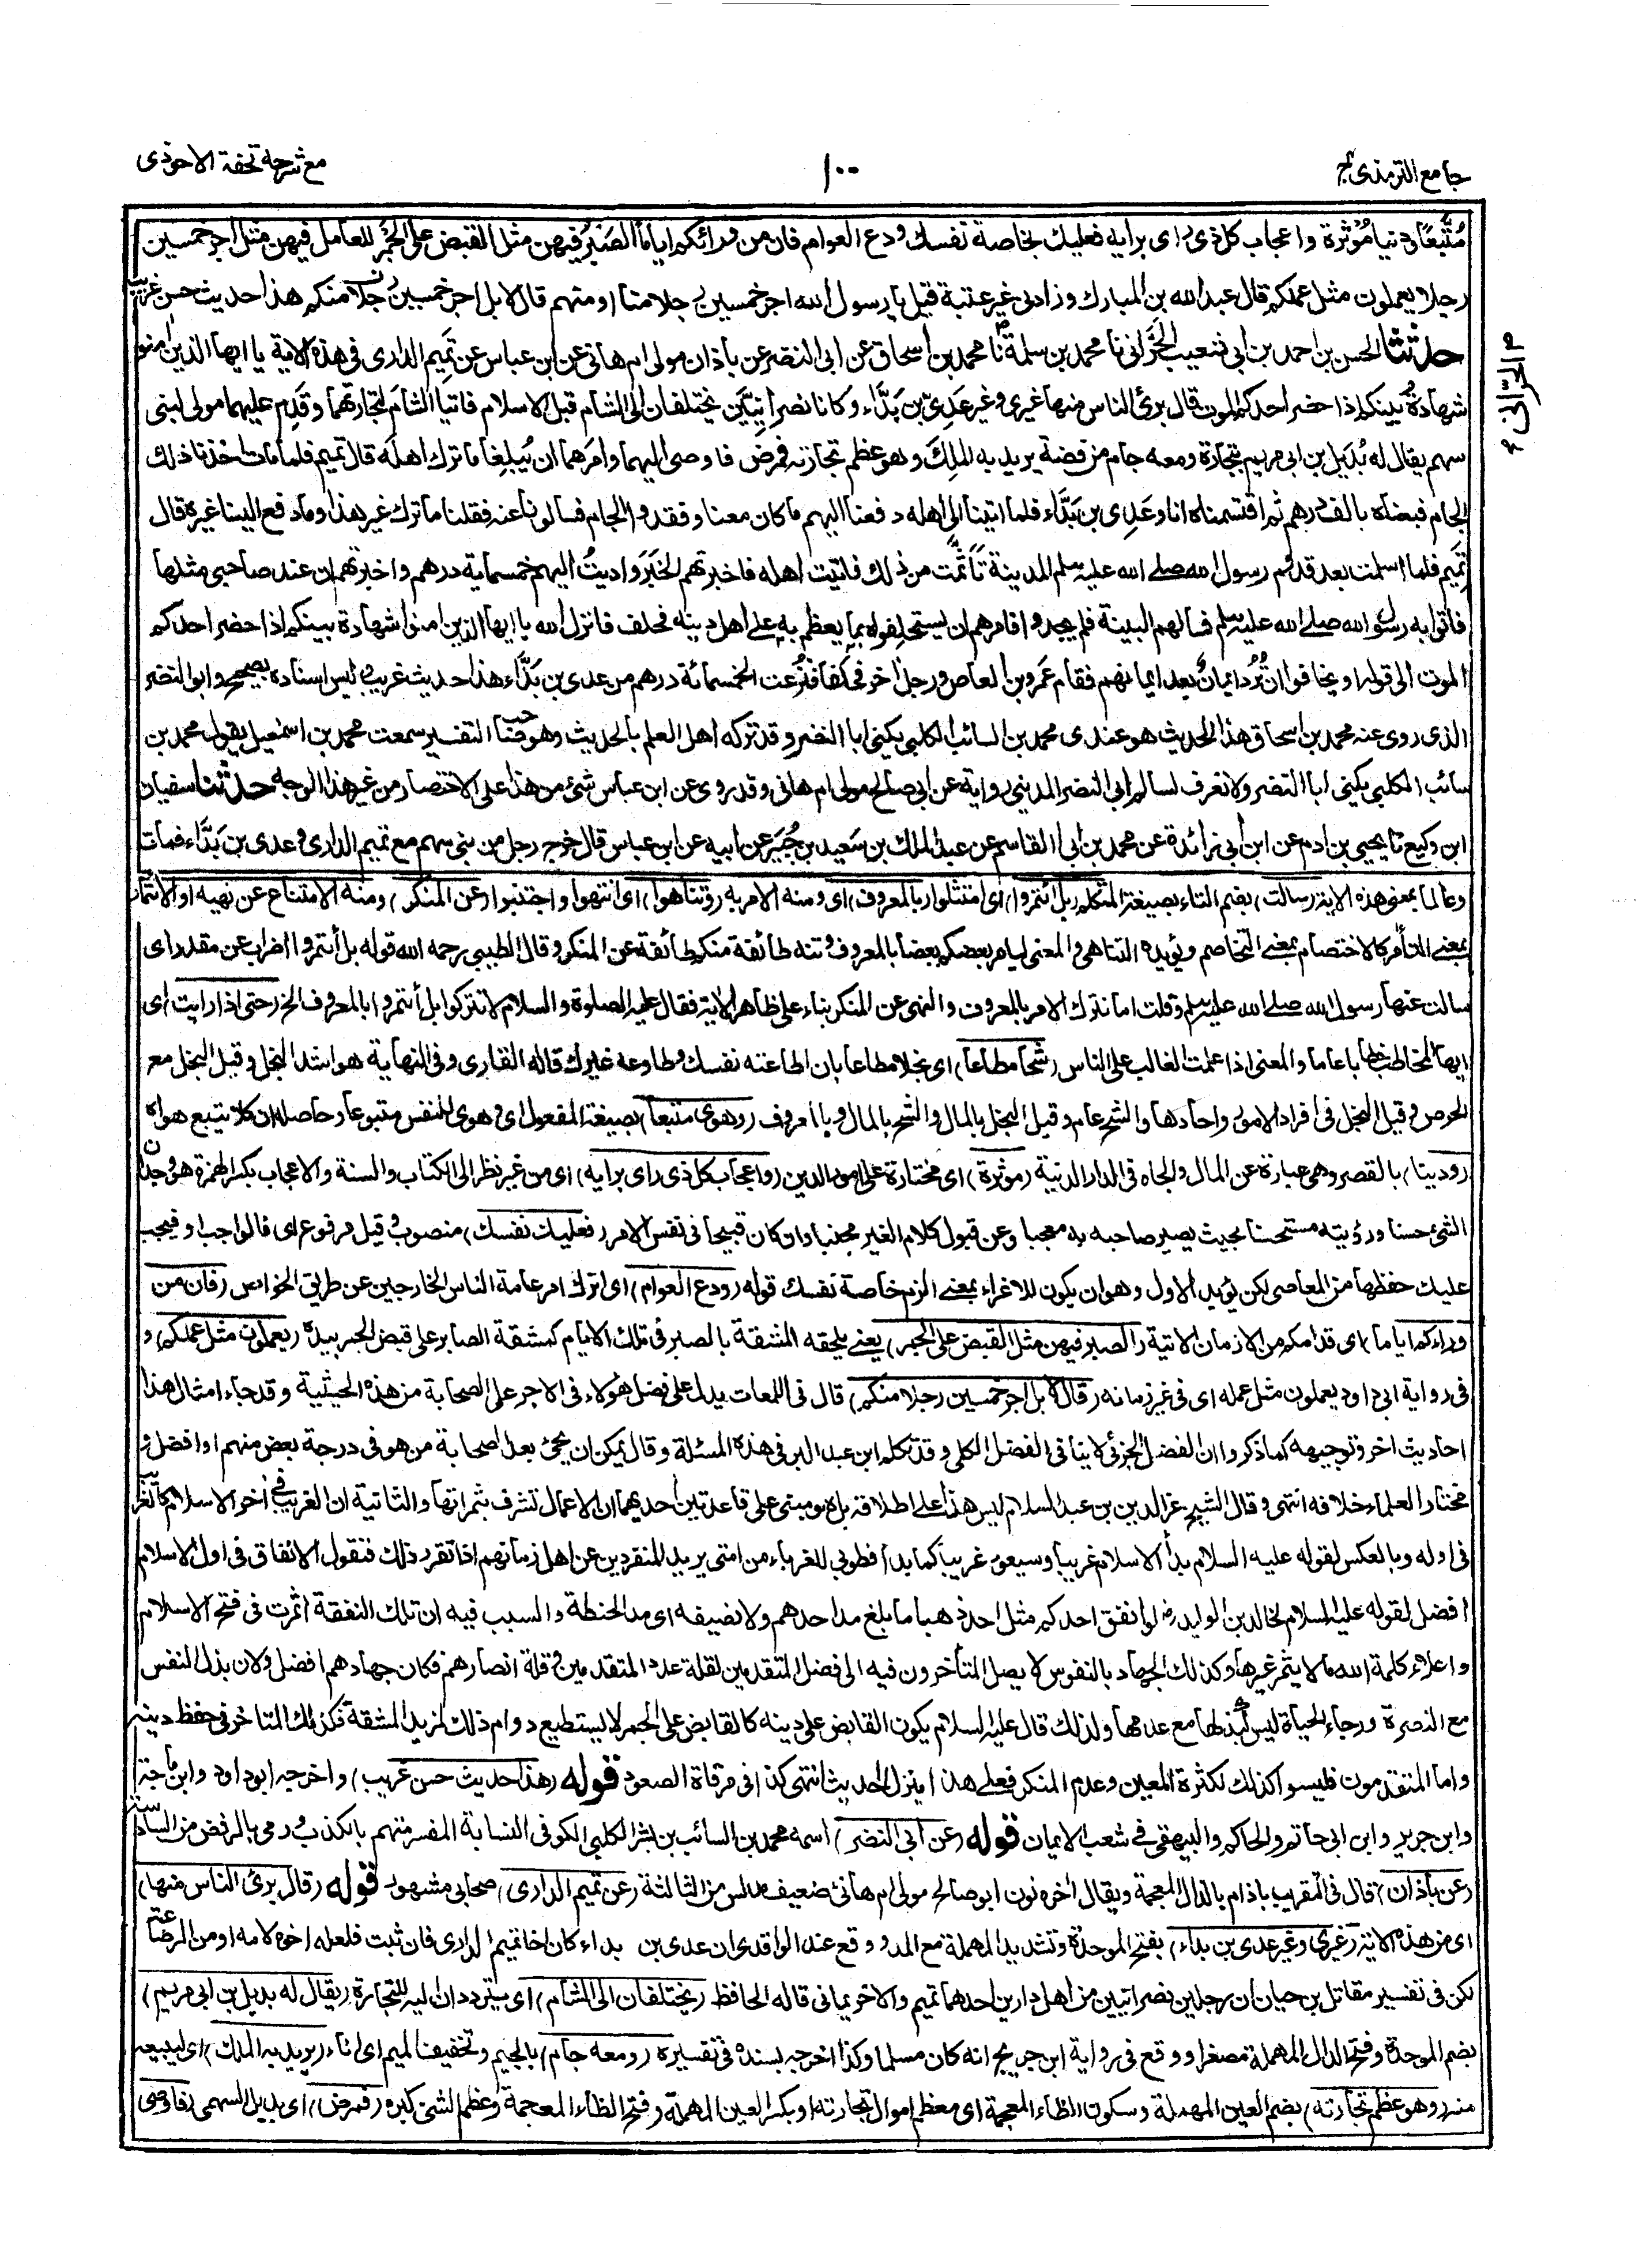 جامع الترمذی ج
١٠٠
مع شرحه تحفة الاحوذی
مُتَّبَعًا ودنیا مُؤْثَرة واعجاب كل ذی رای برایه فعلیك بخاصة نفسك ودع العوام فان من ورائكم ایاماً الصَّبْرُ فیهن مثل القبض علی الجَمْرِ للعامل فیهن مثل اجر خمسین
رجلا یعملون مثل عملكم قال عبد الله بن المبارك وزادنی غیر عتبة قیل یا رسول الله اجر خمسین رجلا منا او منهم قال لا بل اجر خمسین رجلا منكم هذا حدیث حسن غریب
حدثنا الحسن بن احمد بن ابی شعیب الحَرَّانی نا محمد بن سلمة نا محمد بن اسحاق عن ابی النضر عن باذان مولی ام هانی عن ابن عباس عن تَمِیم الداری فی هذه الایة یا ایها الذین امنوا
شهادة بینكم اذا حضر احدكم الموت قال برئ الناس منها غیری وغیر عَدِی بن بَدَّاء وكانا نصرانِیَّیْن یختلفان الی الشام قبل الاسلام فاتیا الشام لتجارتهما وقَدِم علیهما مولی لبنی
سهم یقال له بُدَیل بن ابی مریم بتجارة ومعه جام من فضة یرید به المَلِكَ وهو عظم تجارته فمرض فاوصی الیهما وامرهما ان یُبلِغا ما ترك اهلَه قال تمیم فلما مات اخذنا ذلك
الجام فبعناه بالف درهم ثم اقتسمناه انا وعَدِی بن بَدَّاء فلما اتینا الی اهله دفعنا الیهم ما كان معنا وفقدوا الجام فسالونا عنه فقلنا ما ترك غیر هذا وما دفع الینا غیره قال
تَمِیم فلما اسلمت بعد قدوم رسول الله صلی الله علیه وسلم المدینة تَأَثَّمْت من ذلك فاتیت اهله فاخبرتهم الخَبَر وادیتُ الیهم خمسمایة درهم واخبرتهم ان عند صاحبی مثلها
فاتوا به رسول الله صلی الله علیه وسلم فسالهم البینة فلم یجدوا فامرهم ان یستحلِفوه بما یعظم به علی اهل دینه فحلف فانزل الله یا ایها الذین امنوا شهادة بینكم اذا حضر احدكم
الموت الی قوله او یخافوا ان تُرَدَّ ایمانٌ بعد ایمانهم فقام عَمرو بن العاص ورجل اخر فحلفا فنُزِعت الخمسمائة درهم من عدی بن بَدَّاء هذا حدیث غریب لیس اسناده بصحیح وابو النضر
الذی روی عنه محمد بن اسحاق هذا الحدیث هو عندی محمد بن السائب الكلبی یكنی ابا النضر وقد تركه اهل العلم بالحدیث وهو صاحب التفسیر سمعت محمد بن اسمٰعیل یقول محمد بن
سائب الكلبی یكنی ابا النضر ولا نعرف لسالم ابی النضر المدینی روایة عن ابی صالح مولی ام هانی وقد روی عن ابن عباس شئ من هذا علی الاختصار من غیر هذا الوجه حدثنا سفیان
ابن وكیع نا یحیی بن ادم عن ابن ابی زائدة عن محمد بن ابی القاسم عن عبد الملك بن سَعید بن جُبَیر عن ابیه عن ابن عباس قال خرج رجل من بنی سهم مع تمیم الداری وعدی بن بَدَّاء فمات
وعالما بمعنی هذه الایة (سالت) بضم التاء بصیغة المتكلم (بل ائتمروا) ای امتثلوا (بالمعروف) ای ومنه الامر به (وتناهوا) ای انتهوا واجتنبوا (عن المنكر) ومنه الامتناع عن نهیه او الائتمار
بمعنی التأمر كالاختصام بمعنی التخاصم ویؤیده التناهی والمعنی لیامر بعضكم بعضا بالمعروف وتنه طائفة منكم طائفة عن المنكر وقال الطیبی رحمه الله قوله بل أئتمروا اضراب عن مقدر ای
سالت عنها رسول الله صلی الله علیه وسلم وقلت اما نترك الامر بالمعروف والنهی عن المنكر بناء علی ظاهر الایة فقال علیه الصلوة والسلام لا تتركوا بل أئتمروا بالمعروف الخ (حتی اذا رایت) ای
ایها المخاطب خطابا عاما والمعنی اذا علمت الغالب علی الناس (شحا مطاعا) ای بخلا مطاعا بان اطاعته نفسك وطاوعه غیرك قاله القاری وفی النهایة هو اشد البخل وقیل البخل مع
الحرص وقیل البخل فی افراد الامور واحادها والشح عام وقیل البخل بالمال والشح بالمال وبالمعروف (وهوی متبعا) بصیغة المفعول ای وهوی للنفس متبوعا وحاصله ان كلا یتبع هواه
(ودنیا) بالقصر وهی عبارة عن المال والجاه فی الدار الدنیة (مؤثرة) ای مختارة علی امور الدین (واعجاب كل ذی رای برایه) ای من غیر نظر الی الكتاب والسنة والاعجاب بكسر الهمزة هو وجدان
الشئ حسنا ورؤیته مستحسنا بحیث یصیر صاحبه به معجبا وعن قبول كلام الغیر مجنبا وان كان قبیحا فی نفس الامر (فعلیك نفسك) منصوب وقیل مرفوع ای فالواجب او فیجب
علیك حفظها من المعاصی لكن یؤید الاول وهو ان یكون للاغراء بمعنی الزم خاصة نفسك قوله (ودع العوام) ای اترك امر عامة الناس الخارجین عن طریق الخواص (فان من
وراءكم ایاما) ای قدامكم من الازمان الاتیة (الصبر فیهن مثل القبض علی الجمر) یعنی یلحقه المشقة بالصبر فی تلك الایام كمشقة الصابر علی قبض الجمر بیده (یعملون مثل عملكم) و
فی روایة ابی داود یعملون مثل عمله ای فی غیر زمانه (قال لا بل اجر خمسین رجلا منكم) قال فی اللمعات یدل علی فضل هولاء فی الاجر علی الصحابة من هذه الحیثیة وقد جاء امثال هذا
احادیث اخر وتوجیهه كما ذكروا ان الفضل الجزئی لا ینافی الفضل الكلی وقد تكلم ابن عبد البر فی هذه المسئلة وقال یمكن ان یجئ بعد الصحابة من هو فی درجة بعض منهم او افضل و
مختار العلماء خلافه انتهی وقال الشیخ عز الدین بن عبد السلام لیس هذا علی اطلاقه بل هو مبنی علی قاعدتین احدیهما ان الاعمال تشرف بثمراتها والثانیة ان الغریب فی اخر الاسلام كالغریب
فی اوله وبالعكس لقوله علیه السلام بدأ الاسلام غریبا وسیعود غریبا كما بدأ فطوبی للغرباء من امتی یرید المنفردین عن اهل زمانهم اذا تقرر ذلك فنقول الانفاق فی اول الاسلام
افضل لقوله علیه السلام لخالد بن الولید رض لو انفق احدكم مثل احد ذهبا ما بلغ مد احدهم ولا نصیفه ای مد الحنطة والسبب فیه ان تلك النفقة اثمرت فی فتح الاسلام
واعلاء كلمة الله ما لا یثمر غیرها وكذلك الجهاد بالنفوس لا یصل المتأخرون فیه الی فضل المتقدمین لقلة عدد المتقدمین وقلة انصارهم فكان جهادهم افضل ولان بذل النفس
مع النصرة ورجاء الحیاة لیس كبذلها مع عدمها ولذلك قال علیه السلام یكون القابض علی دینه كالقابض علی الجمر لا یستطیع دوام ذلك لمزید المشقة فكذلك المتاخر فی حفظ دینه
واما المتقدمون فلیسوا كذلك لكثرة المعین وعدم المنكر فعلی هذا ینزل الحدیث انتهی كذا فی مرقاة الصعود قوله (هذا حدیث حسن غریب) واخرجه ابو داود وابن ماجة
وابن جریر وابن ابی حاتم والحاكم والبیهقی فی شعب الایمان قوله (عن ابی النضر) اسمه محمد بن السائب بن بشر الكلبی الكوفی النسابة المفسر متهم بالكذب ورمی بالرفض من السادسة
(عن باذان) قال فی التقریب باذام بالذال المعجمة ویقال اخره نون ابو صالح مولی ام هانئ ضعیف مدلس من الثالثة (عن تمیم الداری) صحابی مشهور قوله (قال برئ الناس منها)
ای من هذه الایة (غیری وغیر عدی بن بداء) بفتح الموحدة وتشدید المهملة مع المد ووقع عند الواقدی ان عدی بن بداء كان اخا تمیم الداری فان ثبت فلعله اخوه لامه او من الرضاعة
لكن فی تفسیر مقاتل بن حیان ان رجلین نصرانیین من اهل دارین احدهما تمیم والاخر یمانی قاله الحافظ (یختلفان الی الشام) ای یترددان الیه للتجارة (یقال له بدیل بن ابی مریم)
بضم الموحدة وفتح الدال المهملة مصغرا ووقع فی روایة ابن جریج انه كان مسلما وكذا اخرجه بسنده فی تفسیره (ومعه جام) بالجیم وتخفیف المیم ای اناء (یرید به الملك) ای لیبیعه
منه (وهو عظم تجارته) بضم العین المهملة وسكون الظاء المعجمة ای معظم اموال تجارته او بكسر العین المهملة وفتح الظاء المعجمة وعظم الشئ كبره (فمرض) ای بدیل السهمی (فاوصی